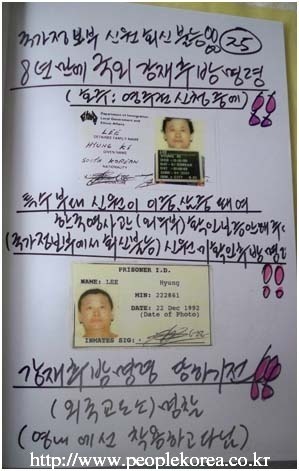 국가정보부 신원 회신 불능 25
8년 만에 국외 강제추방 명령
(호주: 영주권 신청 중에)
Department of Immigration,
Local Government and
Ethnic Affairs
LEE
DETAINEE FAMILY NAME
HYUNG KI
GIVEN NAME
SOUTH KOREAN
NATIONALITY
특수부대 신원이
한국영사관 (외무부)
(국가정보부에서 회신불능) 신원 미확인 추방 명령
PRISONER I.D.
NAME: LEE Hyung
MIN: 222861
DATE: 22 Dec 1992
(Date of Photo)
INMATES SIG:
강제추방 명령 당하기전
(외국교도소) 명찰
(영내에선 착용하고 다님)
www.peoplekorea.co.kr